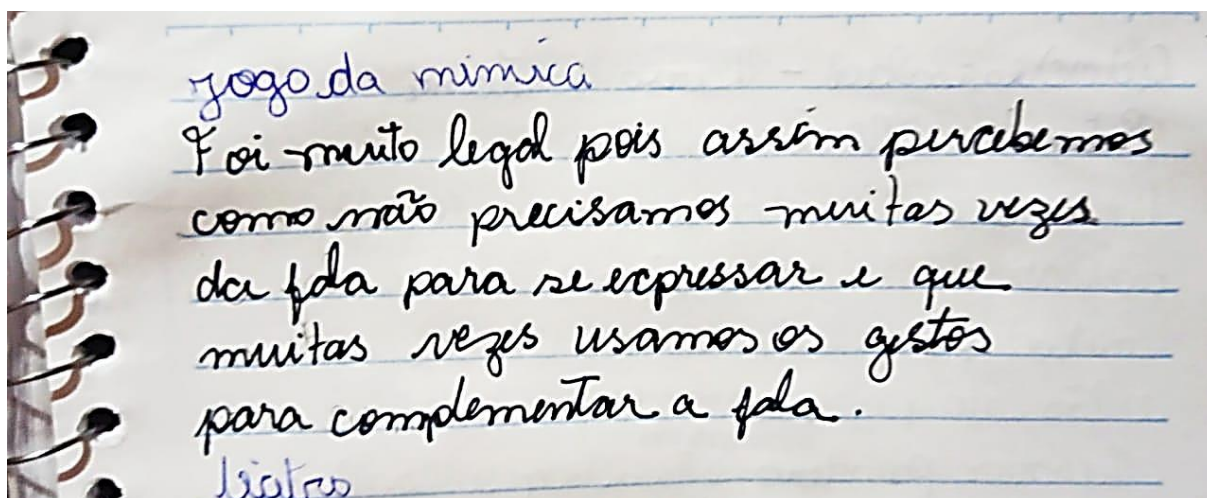 jogo da mimica
Foi muito legal pois assim percebemos
como não precisamos muitas vezes
da fala para se expressar e que
muitas vezes usamos os gestos
para complementar a fala.